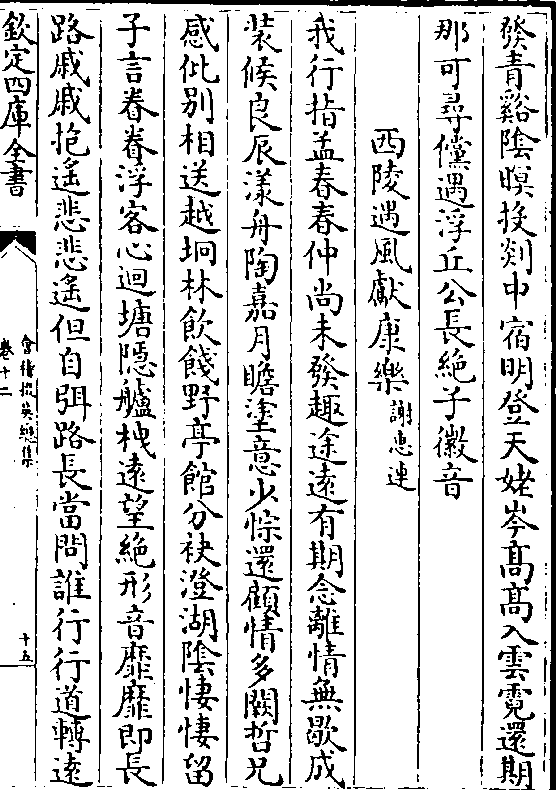 發青谿陰暝投剡中宿明登天姥岑髙髙入雲霓還期
那可尋儻遇浮丘公長絶子徽音
西陵遇風獻康樂 謝惠連
我行指孟春春仲尚未發趣途逺有期念離情無歇成
装候良辰漾舟陶嘉月瞻塗意少悰還顧情多闕哲兄
感仳别相送越坰林飲餞野亭館分袂澄湖陰悽悽留
子言眷眷浮客心迴塘隠艫栧逺望絶形音靡靡即長
路戚戚抱遥悲悲遥但自弭路長當問誰行行道轉逺
欽定四庫全書
會稽掇英總集
卷十二
十五